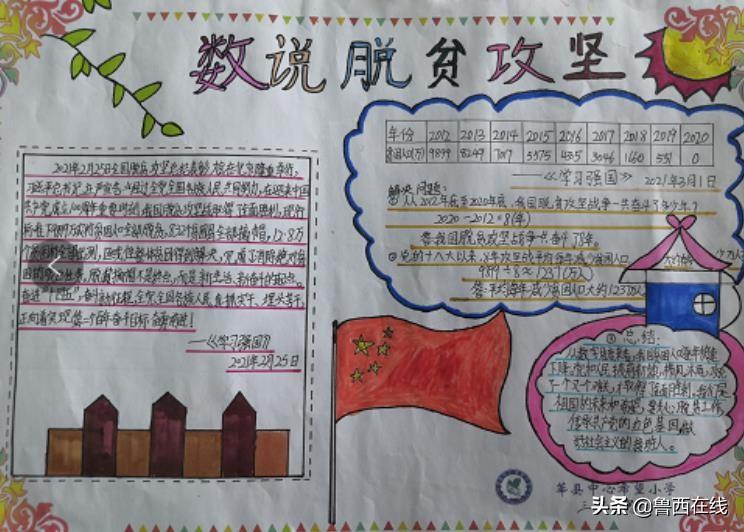 数说脱贫攻坚
2021年2月25日全国脱贫攻坚总结表彰大会在北京隆重举行。
习近平总书记庄严宣告:经过全党全国各族人民共同努力,在迎来中国
共产党成立100周年的重要时刻,我国脱贫攻坚战取得了全面胜利,现行
标准下9899万农村贫困人口全部脱贫,832个贫困县全部摘帽,12.8万
个贫困村全部出列,区域性整体贫困得到解决,完成了消除绝对贫
困的艰巨任务。脱贫摘帽不是终点,而是新生活、新奋斗的起点。
奋进"十四五",奋斗新征程,全党全国各族人民,真抓实干、埋头苦干,
正向着实现第二个百年奋斗目标奋勇前进!
——《学习强国》
2021年2月25日
年份 2012 2013 2014 2015 2016 2017 2018 2019 2020
贫困人口(万) 9899 8249 7017 5575 4335 3046 1660 551 0
——《学习强国》 2021年3月1日
解决问题:
①从2012年底至2020年底,我国脱贫攻坚战一共奋斗了多少年?
2020-2012=8(年)
答:我国脱贫攻坚战斗共奋斗了8年。
②党的十八大以来,8年攻坚战平均每年减少贫困人口
9899÷8≈1237(万人)
答:平均每年减少贫困人口大约1237万人
③总结:
下降,党和人民披荆斩棘、栉风沐雨,
祖国的未来和希望,
传承共产党的红色基因,做
好社会主义的接班人。
莘县中心希望小学
三
头条 @鲁西在线